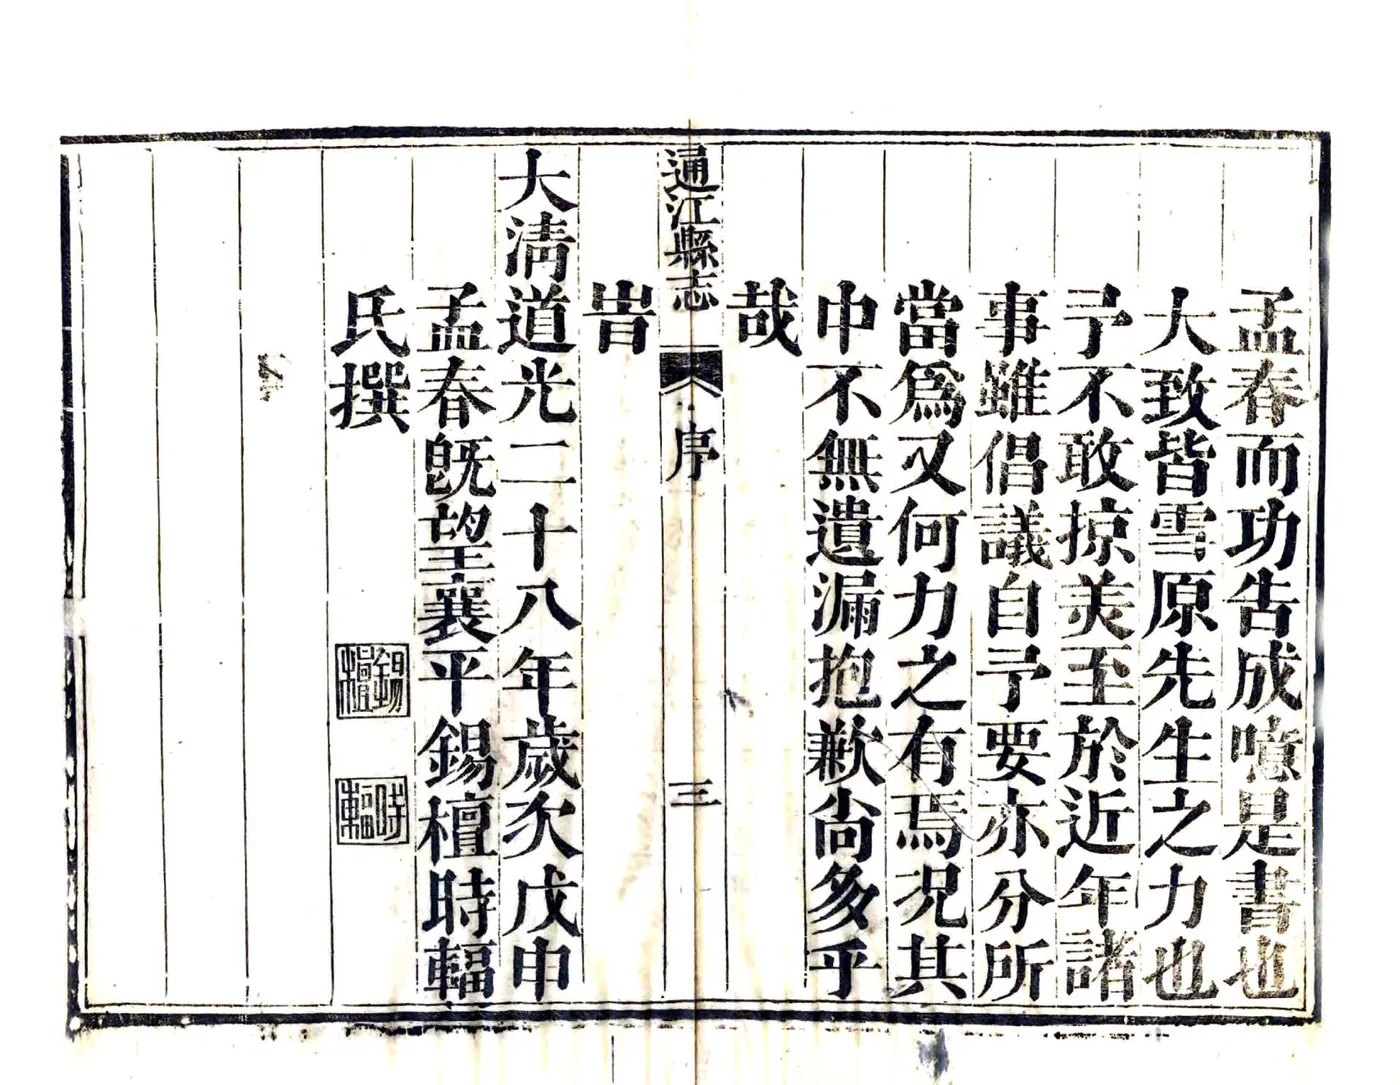 孟春而功告成噫是書也
大致皆雪原先生之力也
予不敢掠美至於近年諸
事雖倡議自予要亦分所
當為又何力之有焉況其
中不無遺漏抱歉尚多乎
哉
通江縣志
序
三
旹
大清道光二十八年歲次戊申
孟春既望襄平錫檀時輻
氏撰
錫檀
時輻